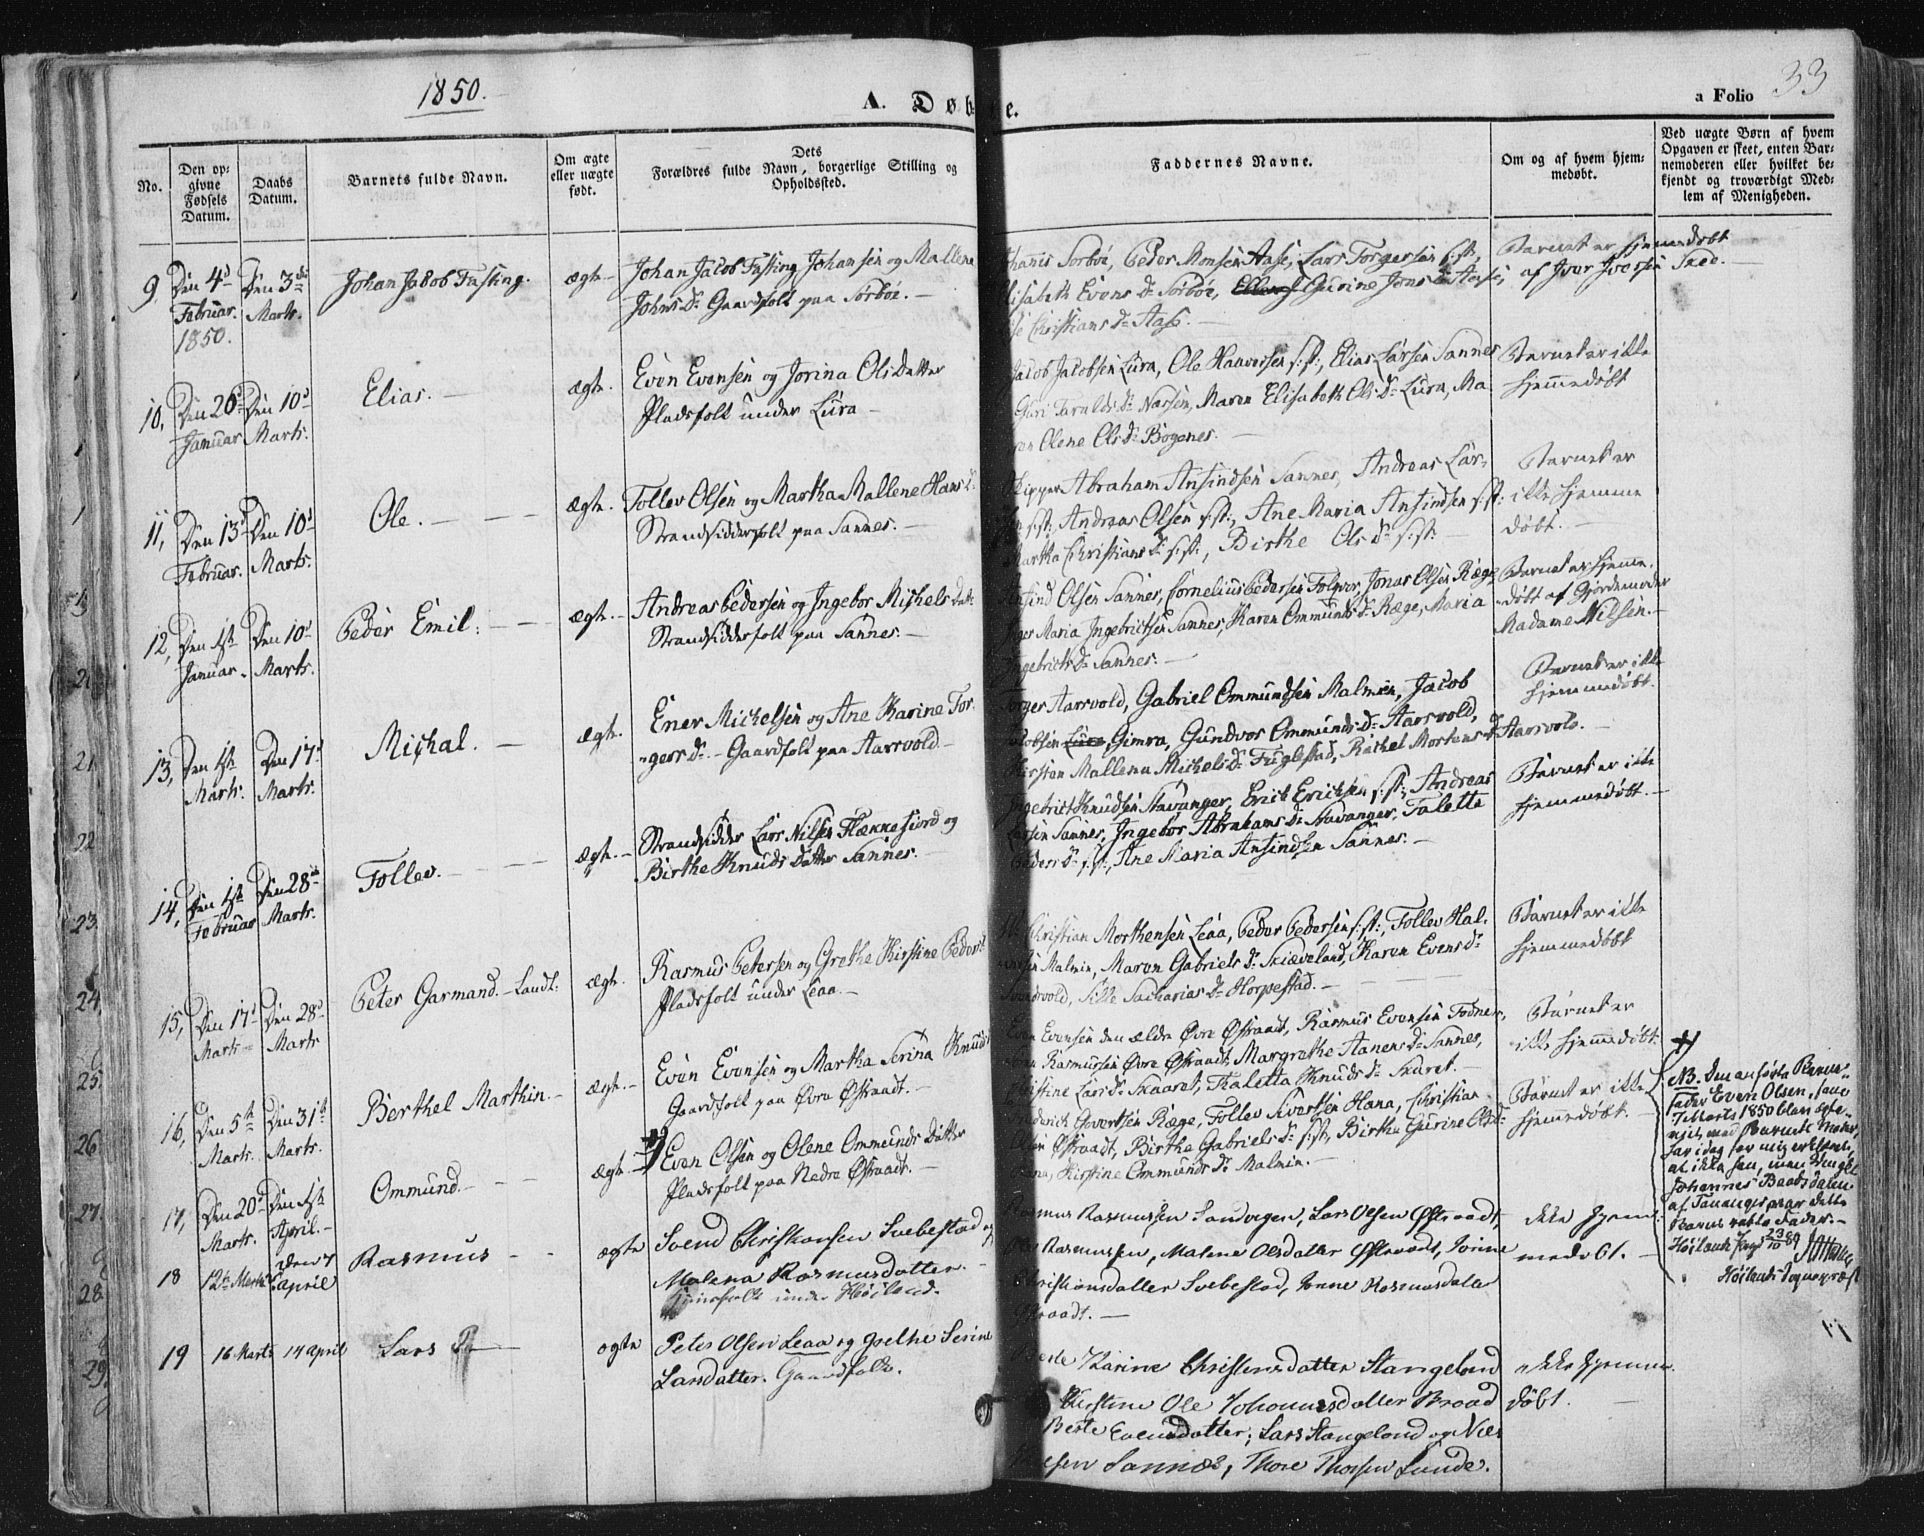 1850.
A. Døbte.
a Folio 33
No.
Den op-
givne
Fødsels
Datum.
Daabs
Datum.
Barnets fulde Navn.
Om ægte
eller uægte
født.
Dets
Forældres fulde Navn, borgerlige Stilling og
Opholdssted.
Faddernes Navne.
Om og af hvem hjem-
medøbt.
Ved uægte Børn af hvem
Opgaven er skeet, enten Bar-
nemoderen eller hvilket be-
kjendt og troværdigt Med-
lem af Menigheden.
9, Den 4d Februar. 1850. Den 3die Marts. Johan Jacob Fasting. ægte
Johan Jacob Fasting Johansen og Mallene
Johns Dr Gaardfolk paa Sørbøe.
Sørbøe, Peder Monsen Aase, Lars Torgersen s:st:,
Elisabeth Evens Dr Sørbøe, Gurine Jons Dr Aase,
Christians Dr Aase.
Barnet er hjemmedøbt
af Iver Iversen Sæd.
10, Den 26d Januar Den 10d Marts. Elias. ægte.
Even Evensen og Jorina Ols Datter
Pladsfolk under Lura
Jacob Jacobsen Lura, Ole Haaversen s:st:, Elias Larsen Sannes
Guri Taralds Dr Næssen, Maren Elisabeth Ols Dr Lura, Ma-
ren Olene Ols Dr Bogenes.
Barnet er ikke
hjemmedøbt
11, Den 13d Februar. Den 10d Marts. Ole. ægte.
Tollev Olsen og Martha Mallene Hans D.
Strandsidderfolk paa Sannes.
Skipper Abraham Ansindsen Sannes, Andreas Lar-
sen s:st:, Andreas Olsen s:st:, Ane Maria Ansindsen s:st:
Martha Christians Dr s:st:, Birthe Ols Dr s:st:
Barnet er
ikke hjemme
døbt.
12, Den 1ste Januar. Den 10d Marts. Peder Emil. ægte.
Andreas Pedersen og Ingebor Michels Datt
Strandsidderfolk paa Sannes.
Ansind Olsen Sannes, Cornelius Pedersen Folqver, Jonas Olsen Ræge
Inger Maria Ingebrictsen Sannes, Karen Ommunds Dr Ræge, Maria
Ingebricts Dr Sannes.
Barnet er hjemme-
døbt af Gjordemoder
Madame Nilsen.
13, Den 1ste Marts. Den 17d Marts. Michal. ægte.
Ener Michelsen og Ane Karine Tor-
gers Dr. Gaardfolk paa Aarsvold
Torger Aarsvold, Gabriel Ommundsen Malmin, Jacob
Jacobsen Gimra, Gundvor Ommunds Dr Aarsvold,
Kirsten Mallena Michels Dr Fuglestad, Rachel Mortens Dr Aarsvold.
Barnet er ikke
hjemmedøbt.
14, Den 1ste Februar Den 28de Marts. Tollev. ægte.
Strandsidder Lars Nilsen Flekkefiord og
Birthe Knuds Datter Sannes.
Ingebrict Knudsen Stavanger, Erick Ericksen s:st:, Andreas
Larsen Sannes, Ingebor Abrahams Dr Stavanger, Talette
Peders Dr s:st:, Ane Maria Ansindsen Sannes.
Barnet er ikke
hjemmedøbt.
15, Den 17d Marts Den 28d Marts Peter Garmand. ægte.
Rasmus Petersen og Grethe Kirstine Peders D
Pladsfolk under Leaa.
Christian Morthensen Leaa, Peder Pedersen s:st:, Tollev Hal-
Malmin, Maren Gabriels Dr Skiæveland, Karen Evens Dr
Svendsvold, Sille Sacharias Dr Horpestad.
Barnet er ikke
hjemmedøbt
16, Den 5te Marts. Den 31te Marts. Berthel Marthin ægte.
Even Evensen og Martha Serina Knuds
Gaardfolk paa Øvre Østraadt.
Even Evensen den ældre Øvre Østraadt, Rasmus Evensen Fodnes,
Rasmussen Øvre Østraadt, Margrethe Aanens Dr Sannes,
Christine Lars Dr Skaaret, Thaletta Knuds Dr Skaret.
Barnet er
ikke hjemmedøbt.
17, Den 20d Marts. Den 1ste April. Ommund. ægte
Even Olsen og Olene Ommunds Datter
Pladsfolk paa Nedre Østraadt.
Friderick Govertsen Ræge, Tollev Sivertsen Hana, Christian
Olsen Østraadt, Birthe Gabriels Dr s:st:, Birtha Gurine Ols Dr
Hana, Kirstine Ommunds Dr Malmin.
Barnet er ikke
hjemmedøbt.
NB. Den anførte Barne-
fader Even Olsen, som
7 Marts 1850 blev ægte-
viet med Barnets Moder,
har idag for mig erklæret,
at ikke han, men Ungkl
Johannes Baardsdalen
af Tananger var dette
Barns rette Fader.
Høilands Sognepræst
18 12te Marts den 7 april Rasmus ægte
Svend Christiansen Svebestad og
Malena Rasmusdatter.
under Høiland.
Rasmus Rasmussen Sandvigen, Lars Olsen Østraadt,
Rasmussen, Malene Olsdatter Østraadt, Jorine
Christiansdatter Svebestad, Rasmusdatter
Østraadt.
ikke hjem-
medøbt.
19 16 Marts 14 april Lars ægte
Peter Olsen Leaa og Grethe Serine
Larsdatter. Gaardfolk.
Berte Karine Christensdatter Stangeland
Kirstine Ole Johannesdatter Braad
Berte Evensdatter, Lars Stangeland og
Sannæs, Thore Thorsen Lunde.
ikke hjemme
døbt.
21
22
23
24
25
26
27
28
29